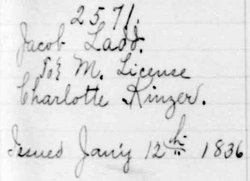 2571.
Jacob Ladd.
To M. License
Charlotte Kinzer.
Issued Jan'y 12th 1836